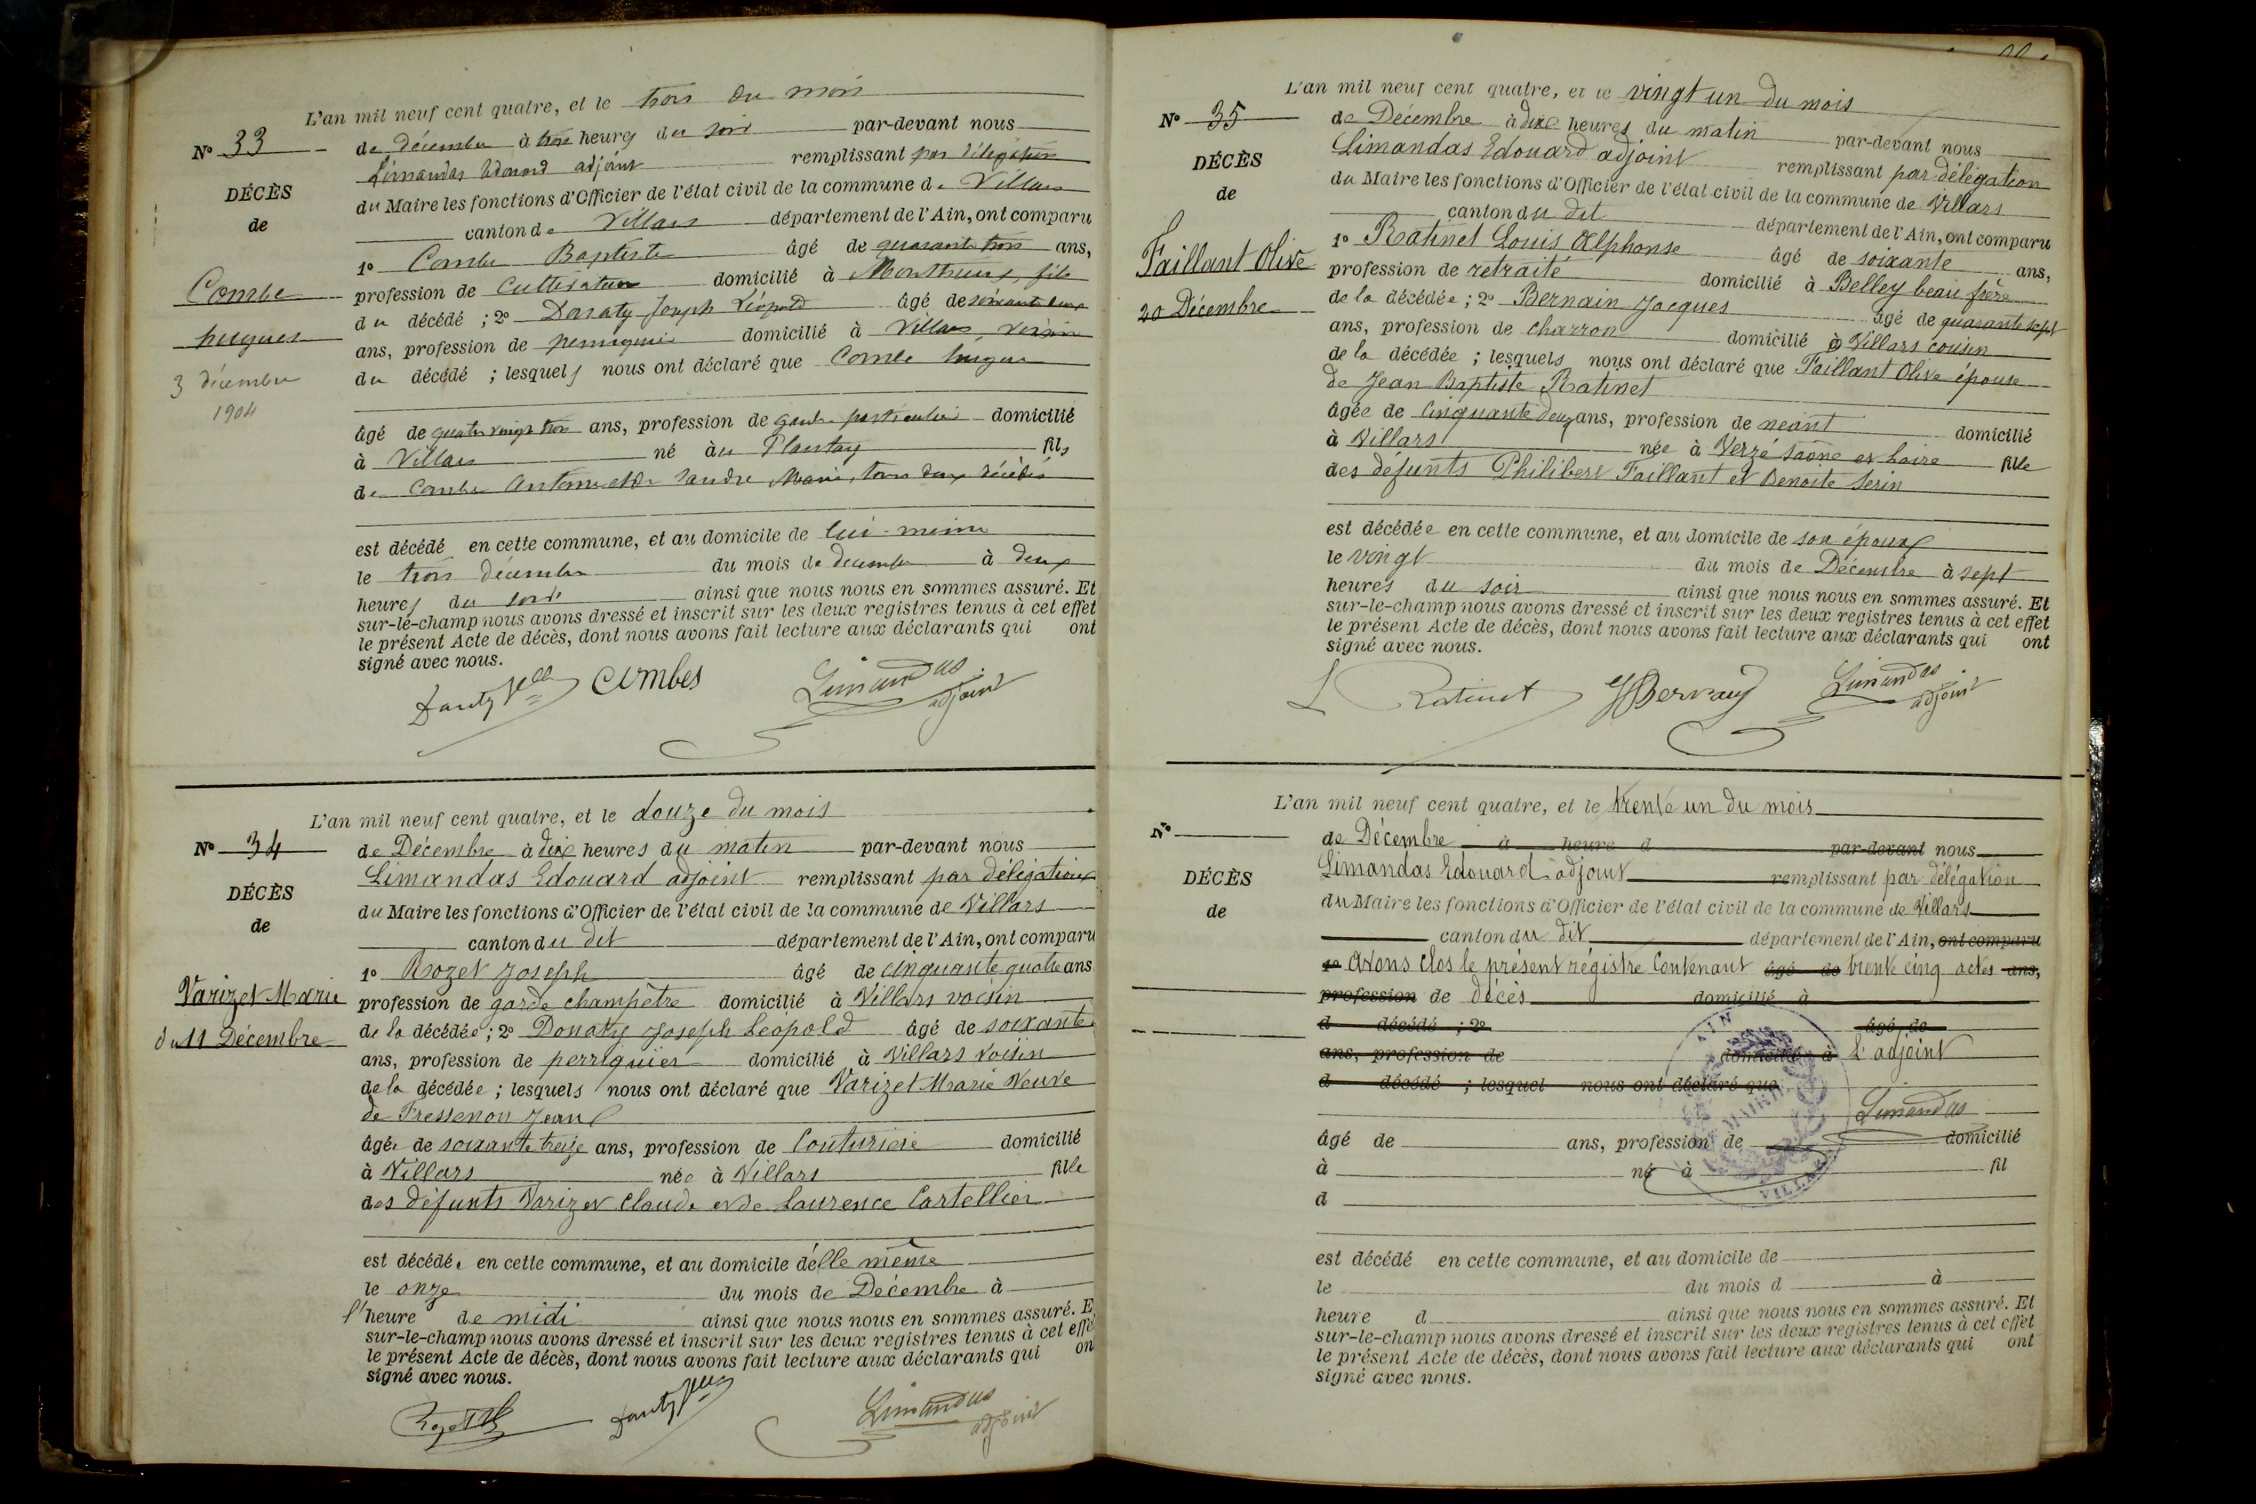 L'an mil neuf cent quatre, et le trois du mois
N° 33
de décembre à trois heures du soir par-devant nous
Limandas Edouard adjoint remplissant par délégation
DÉCÈS
du Maire les fonctions d'Officier de l'état civil de la commune de Villars
de
canton de Villars département de l'Ain, ont comparu
1° Combe Baptiste âgé de quarante trois ans,
Combe
profession de cultivateur domicilié à Monthieux, fils
hugues
du décédé ; 2° Donaty Joseph Léopold âgé de soixante
ans, profession de perruquier domicilié à Villars voisin
3 décembre
1904
du décédé ; lesquels nous ont déclaré que Combe hugues
âgé de quatre vingt trois ans, profession de garde particulier domicilié
à Villars né au Plantay fils
de Combe Antoine et de Sandre Marie, tous deux décédés
est décédé en cette commune, et au domicile de lui-même
le trois décembre du mois de décembre à deux
heures du soir ainsi que nous nous en sommes assuré. Et
sur-le-champ nous avons dressé et inscrit sur les deux registres tenus à cet effet
le présent Acte de décès, dont nous avons fait lecture aux déclarants qui ont
signé avec nous.
Combes Limandas
adjoint
L'an mil neuf cent quatre, et le douze du mois
N° 34
de Décembre à dix heures du matin par-devant nous
Limandas Edouard adjoint remplissant par délégation
DÉCÈS
du Maire les fonctions d'Officier de l'état civil de la commune de Villars
de
canton du dit département de l'Ain, ont comparu
1° Rozet Joseph âgé de cinquante quatre ans
Varizet Marie
profession de garde champêtre domicilié à Villars voisin
du 11 Décembre
de la décédée ; 2° Donaty Joseph Léopold âgé de soixante
ans, profession de perriquier domicilié à Villars voisin
de la décédée ; lesquels nous ont déclaré que Varizet Marie Veuve
de Fressenon Jean
âgée de soixante treize ans, profession de Couturière domicilié
à Villars née à Villars fille
des défunts Varizet Claude et de Laurence Cartellier
est décédée en cette commune, et au domicile d'elle même
le onze du mois de Décembre à
l'heure de midi ainsi que nous nous en sommes assuré. E
sur-le-champ nous avons dressé et inscrit sur les deux registres tenus à cet effe
le présent Acte de décès, dont nous avons fait lecture aux déclarants qui on
signé avec nous.
Limandas
adjoint
L'an mil neuf cent quatre, et le vingt un du mois
N° 35
de Décembre à dix heures du matin par-devant nous
Limandas Edouard adjoint remplissant par délégation
DÉCÈS
du Maire les fonctions d'Officier de l'état civil de la commune de Villars
de
canton du dit département de l'Ain, ont comparu
1° Ratinet Louis Alphonse âgé de soixante ans,
Faillant Olive
profession de retraité domicilié à Belley beau frère
20 Décembre
de la décédée ; 2° Bernain Jacques âgé de quarante sept
ans, profession de charron domicilié à Villars cousin
de la décédée ; lesquels nous ont déclaré que Faillant Olive épouse
de Jean Baptiste Ratinet
âgée de cinquante deux ans, profession de néant domicilié
à Villars née à Verzé Saône et Loire fille
des défunts Philibert Faillant et Benoite Serin
est décédée en cette commune, et au domicile de son époux
le vingt du mois de Décembre à sept
heures du soir ainsi que nous nous en sommes assuré. Et
sur-le-champ nous avons dressé et inscrit sur les deux registres tenus à cet effet
le présent Acte de décès, dont nous avons fait lecture aux déclarants qui ont
signé avec nous.
L Ratinet Limandas
adjoint
L'an mil neuf cent quatre, et le trente un du mois
N°
de Décembre à heure d par-devant nous
Limandas Edouard adjoint remplissant par délégation
DÉCÈS
du Maire les fonctions d'Officier de l'état civil de la commune de Villars
de
canton du dit département de l'Ain, ont comparu
1° avons clos le présent régistre Contenant âgé de trente cinq actes ans,
profession de décès domicilié à
d décédé ; 2° âgé de
ans, profession de domicilié à L'adjoint
d décédé ; lesquel nous ont déclaré que
Limandas
AIN MAIRIE VILLARS
âgé de ans, profession de domicilié
à né à fil
d
est décédé en cette commune, et au domicile de
le du mois d à
heure d ainsi que nous nous en sommes assuré. Et
sur-le-champ nous avons dressé et inscrit sur les deux registres tenus à cet effet
le présent Acte de décès, dont nous avons fait lecture aux déclarants qui ont
signé avec nous.